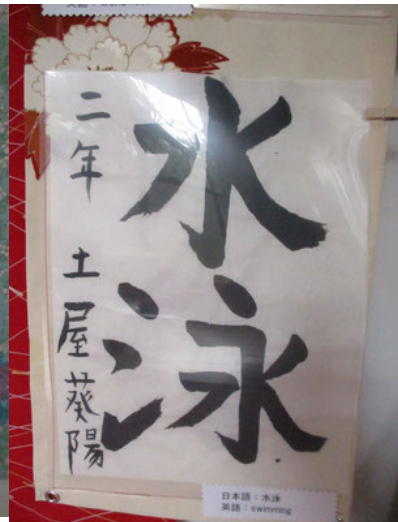 水泳
二年 土屋葵陽
日本語：水泳
英語：swimming